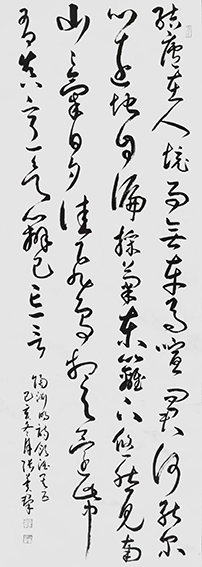 結廬在人境而無車馬喧問君何能爾
心遠地自偏採菊東籬下悠然見南
山々氣日夕佳飛鳥相與還此中
有真意欲辨已忘言
陶淵明詩飲酒其五
己亥冬月